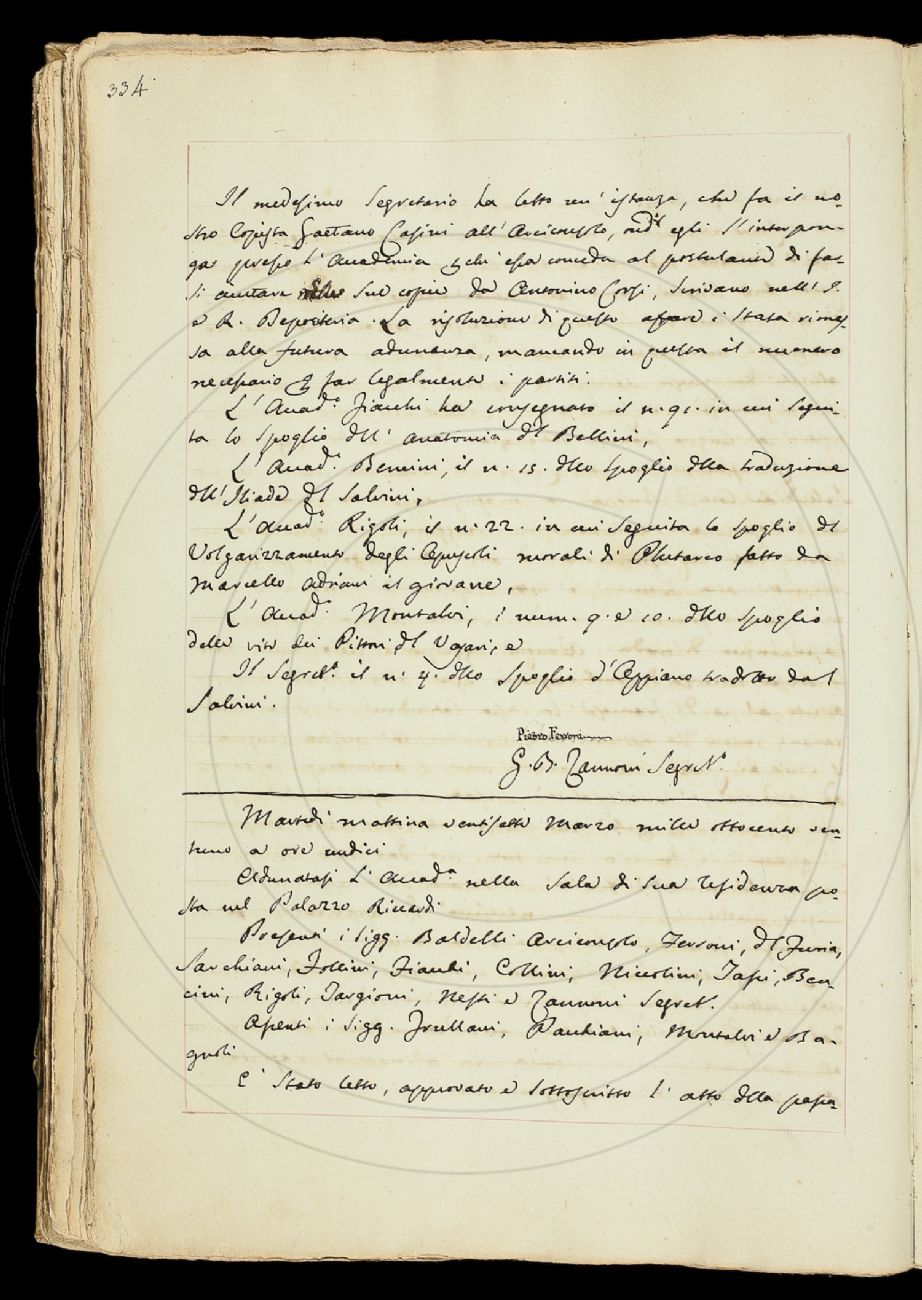 334
Il medesimo Segretario ha letto un' istanza, che fa il no-
stro Copista Gaetano Casini all' Arciconsolo, ond' egli s' interpon-
ga presso l' Accademia, che essa conceda al postulante di far-
si aiutare nelle sue copie da Antonino Corsi, Scrivano nell' I.
e R. Depositeria. La risoluzione di questo affare è stata rimes-
sa alla futura adunanza, mancando in questa il numero
necessario per far legalmente i partiti.
L' Accad.o Fiacchi ha consegnato il n. 91. in cui segui-
ta lo spoglio dell' anatomia del Bellini,
L' Accad.o Bencini, il n. 15. dello spoglio della traduzione
dell' Iliade del Salvini,
L' Accad.o Rigoli, il n. 22. in cui seguita lo spoglio del
Volgarizzamento degli Opuscoli morali di Plutarco fatto da
Marcello Adriani il giovane,
L' Accad.o Montalvi, i num. 9. e 10. dello spoglio
delle vite dei Pittori del Vasari, e
Il Segret.o il n. 4. dello Spoglio d' Oppiano tradotto dal
Salvini.
Pietro Ferroni
G. B. Zannoni Segret.o
Martedì mattina ventisette Marzo mille ottocento ven-
tuno a ore undici
Adunatasi l' Accad.a nella Sala di sua residenza po-
sta nel Palazzo Riccardi
Presenti i Sigg. Baldelli Arciconsolo, Ferroni, del Furia,
Sarchiani, Follini, Fiacchi, Collini, Niccolini, Papi, Ben-
cini, Rigoli, Targioni, Nesti e Zannoni Segret.
Assenti i Sigg. Frullani, Pacchiani, Montalvi e Ba-
gnoli
È stato letto, approvato e sottoscritto l' atto della passa-